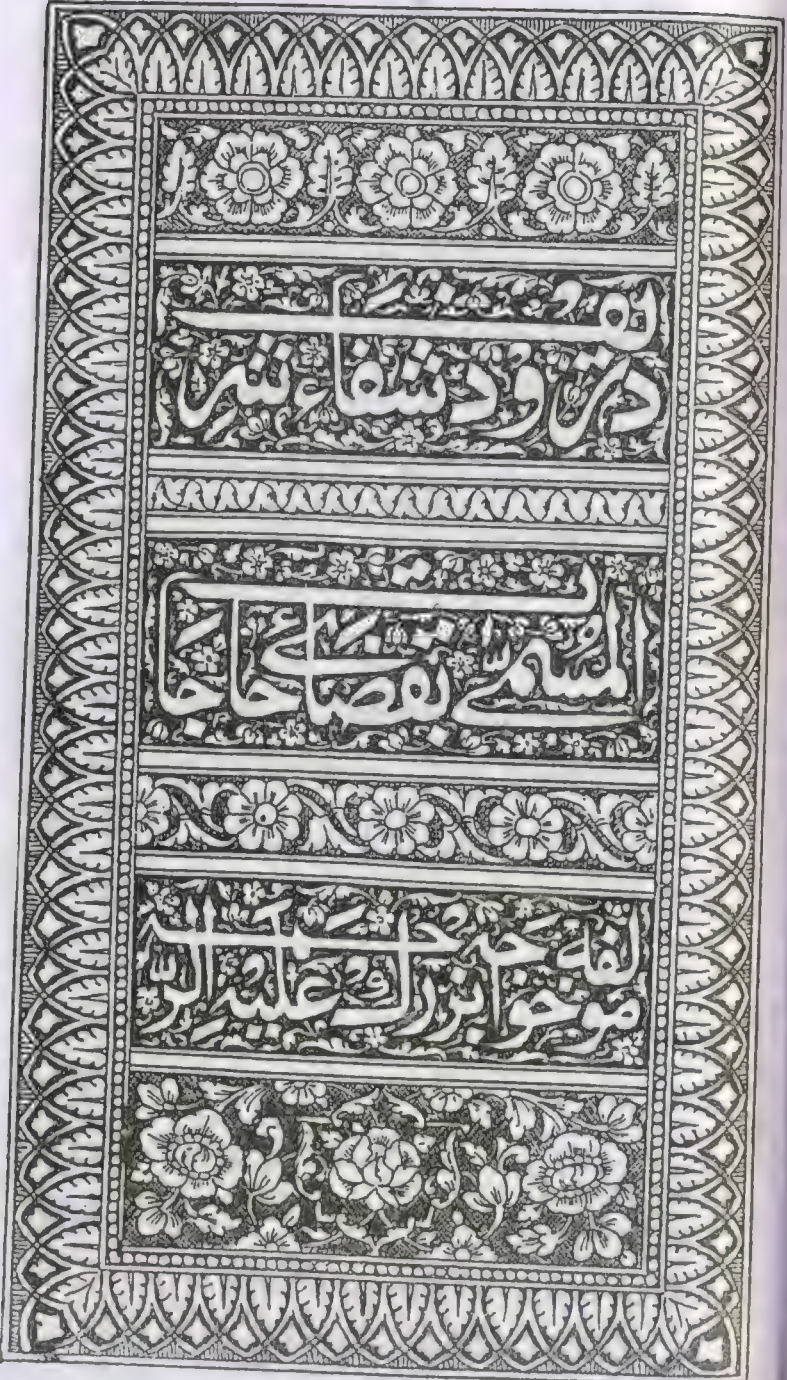 درود شفاء شریف
المسمّی بقضائے حاجات
مولفہ خواجہ بزرگ علیہ الرّحمہ